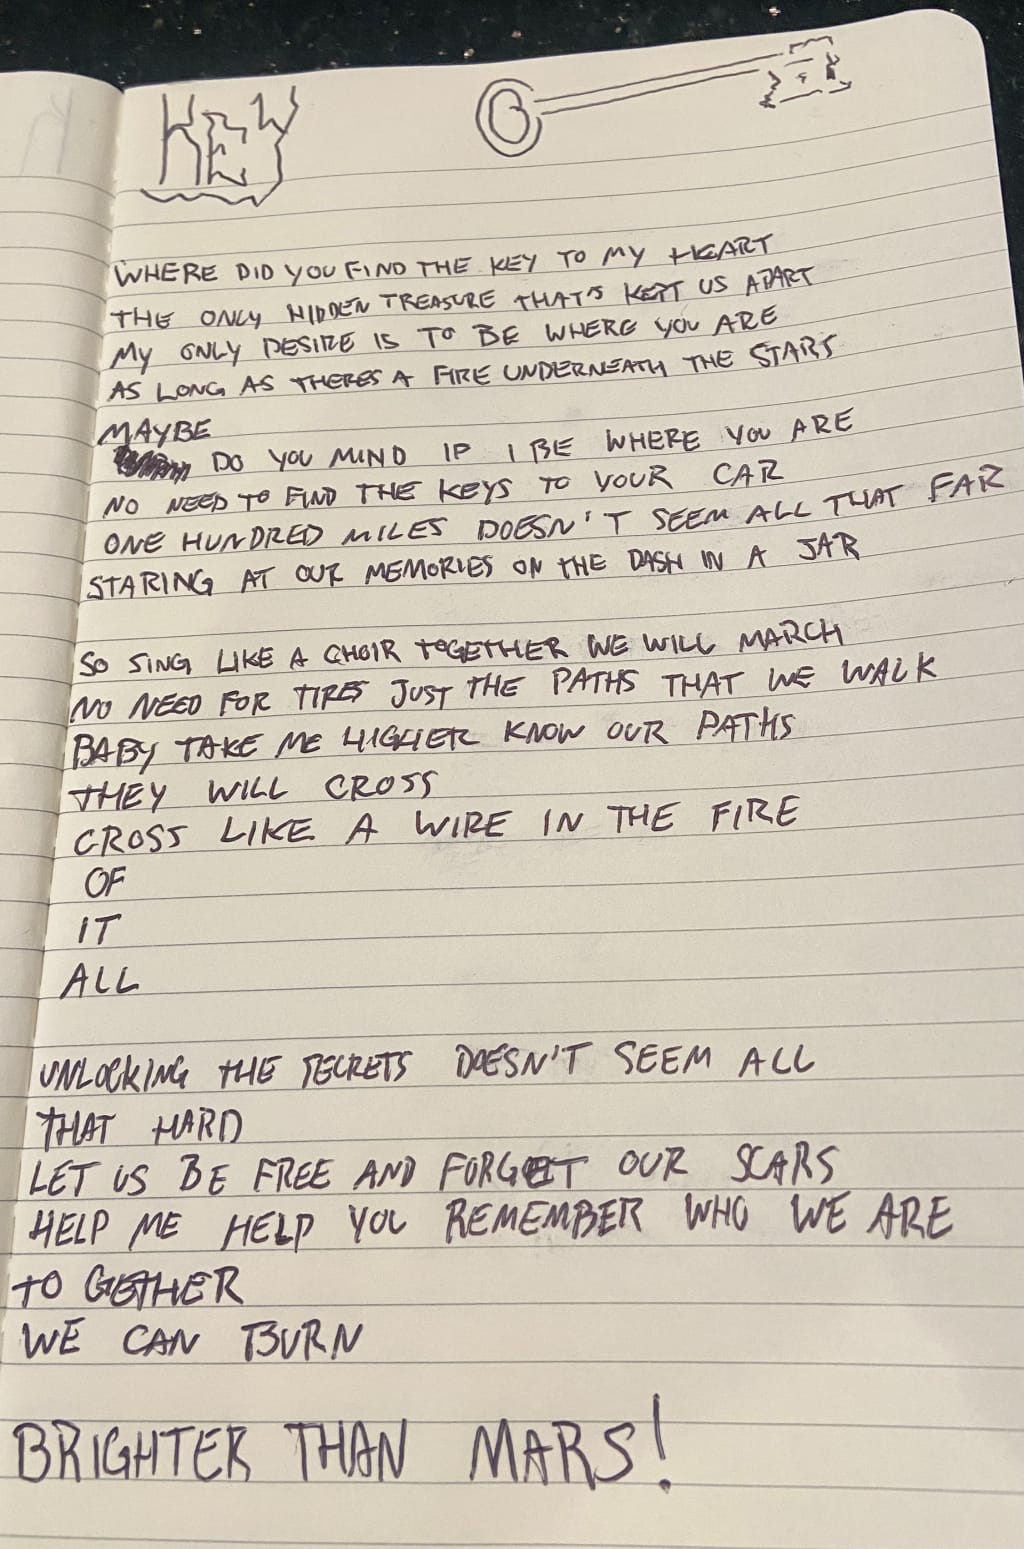 KEY
WHERE DID YOU FIND THE KEY TO MY HEART
THE ONLY HIDDEN TREASURE THAT'S KEPT US APART
MY ONLY DESIRE IS TO BE WHERE YOU ARE
AS LONG AS THERES A FIRE UNDERNEATH THE STARS
MAYBE
DO YOU MIND IF I BE WHERE YOU ARE
NO NEED TO FIND THE KEYS TO YOUR CAR
ONE HUNDRED MILES DOESN'T SEEM ALL THAT FAR
STARING AT OUR MEMORIES ON THE DASH IN A JAR
SO SING LIKE A CHOIR TOGETHER WE WILL MARCH
NO NEED FOR TIRES JUST THE PATHS THAT WE WALK
BABY TAKE ME HIGHER KNOW OUR PATHS
THEY WILL CROSS
CROSS LIKE A WIRE IN THE FIRE
OF
IT
ALL
UNLOCKING THE SECRETS DOESN'T SEEM ALL
THAT HARD
LET US BE FREE AND FORGET OUR SCARS
HELP ME HELP YOU REMEMBER WHO WE ARE
TO GETHER
WE CAN BURN
BRIGHTER THAN MARS!